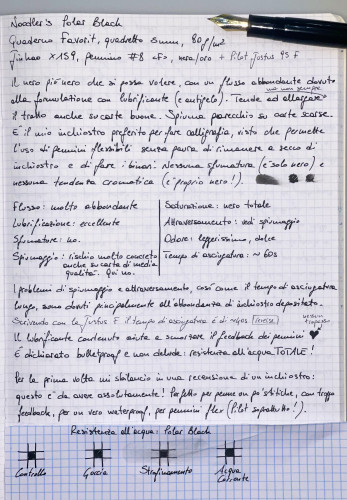 Noodler's Polar Black
Quaderno Favorit, quadretto 5mm, 80 g/m²
Jinhao X159, pennino #8 EF, nero/oro + Pilot Justus 95 F
Il nero più nero che si possa volere, con un flusso abbondante dovuto
alla formulazione con lubrificante (e antigelo). Tende ad allargare
ma non sempre
il tratto anche su carte buone. Spiuma parecchio su carte scarse.
È il mio inchiostro preferito per fare calligrafia, visto che permette
l'uso di pennini flessibili senza paura di rimanere a secco di
inchiostro e di fare i binari. Nessuna sfumatura (è solo nero) e
nessuna tendenza cromatica (è proprio nero!).
Flusso: molto abbondante
Lubrificazione: eccellente
Sfumature: no.
Spiumaggio: rischio molto concreto
anche su carta di media
qualità. Qui no.
Saturazione: nero totale
Attraversamento: vedi spiumaggio
Odore: leggerissimo, dolce
Tempo di asciugatura: ~ 60s
I problemi di spiumaggio e attraversamento, così come il tempo di asciugatura
lungo, sono dovuti principalmente all'abbondanza di inchiostro depositato.
Scrivendo con la Justus F il tempo di asciugatura è di
Il lubrificante contenuto aiuta a smorzare il feedback dei pennini ♥
È dichiarato bulletproof e non delude: resistenza all'acqua TOTALE!
Per la prima volta mi sbilancio in una recensione di un inchiostro:
questo è da avere assolutamente! Perfetto per penne un po' stitiche, con troppo
feedback, per un vero waterproof, per pennini flex (Pilot soprattutto!).
Resistenza all'acqua: Polar Black
Controllo
Goccia
Strofinamento
Acqua
Corrente